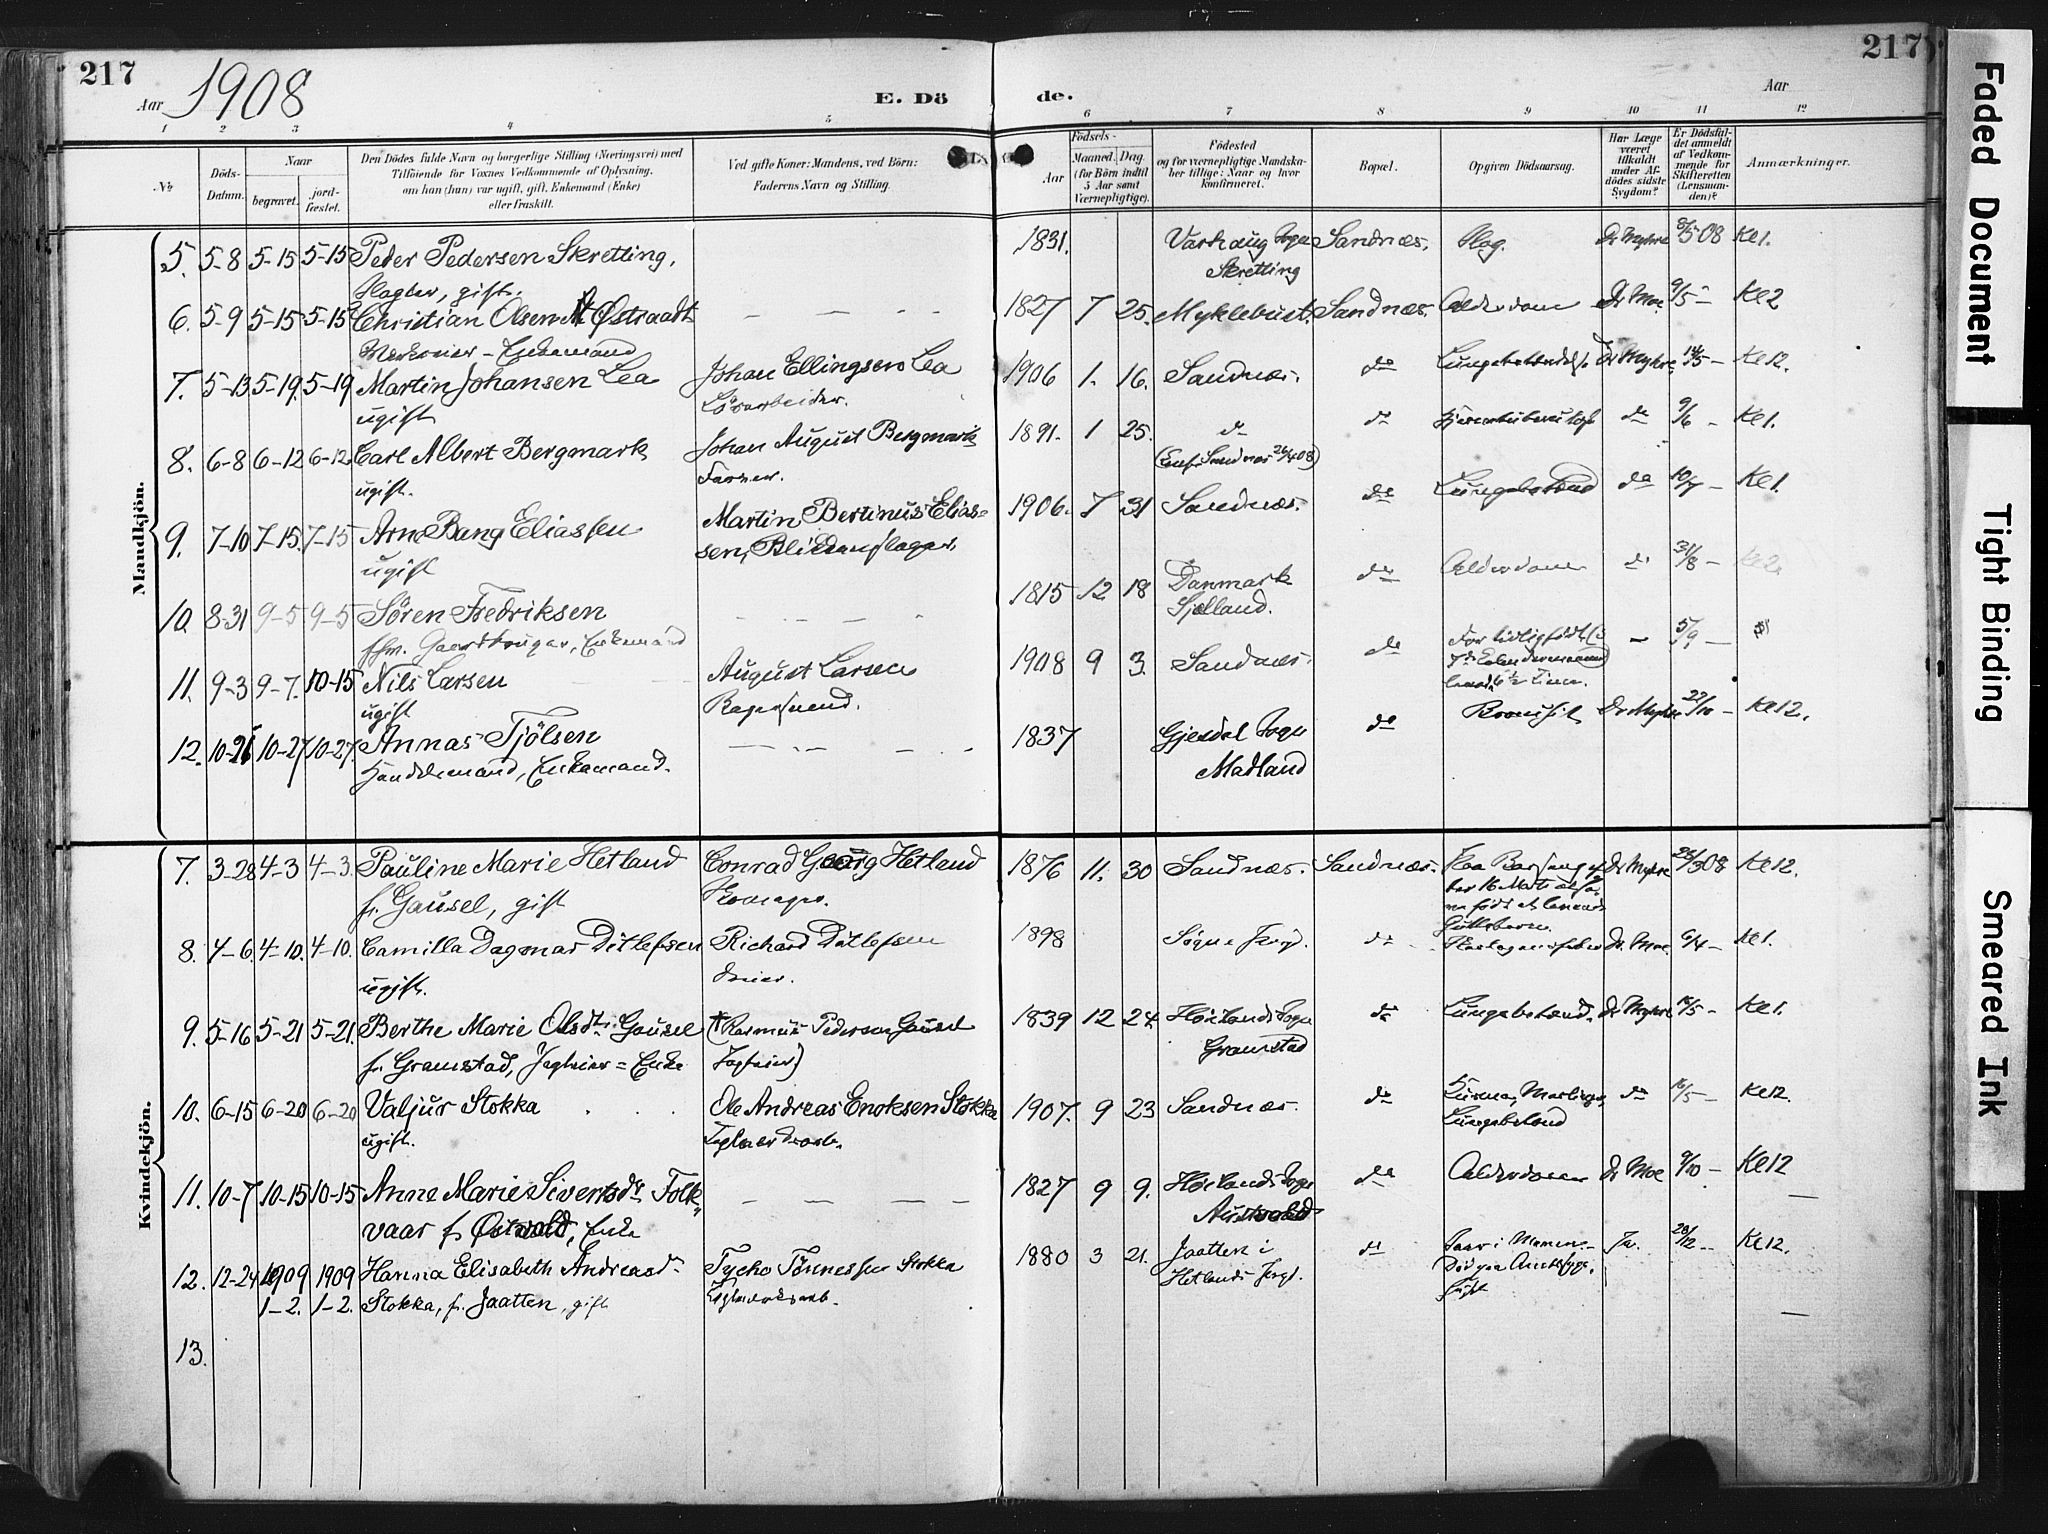 217
Aar 1908
E. Dö
de.
217
Aar
1 2 3 4 5 6 7 8 9 10 11 12
№
Döds-
Datum.
Naar
begravet.
jord-
fæstet.
Den Dödes fulde Navn og borgerlige Stilling (Næringsvei) med
Tilföiende for Voxnes Vedkommende af Oplysning,
om han (hun) var ugift, gift, Enkemand (Enke)
eller fraskilt.
Ved gifte Koner: Mandens, ved Börn:
Faderens Navn og Stilling.
Födsels-
Aar
Maaned. Dag.
(for Börn indtil
5 Aar samt
Værnepligtige).
Födested
og for værnepligtige Mandska-
ber tillige: Naar og hvor
konfirmeret.
Bopæl.
Opgiven Dödsaarsag.
Har Læge
været
tilkaldt
under Af-
dödes sidste
Sygdom?
Er Dödsfal-
det anmeldt
af Vedkom-
mende for
Skifteretten
(Lensman-
den)?
Anmærkninger.
Mandkjön.
5. 5-8 5-15 5-15 Peder Pedersen Skretting, 1831. Varhaug Sogn Sandnæs. Slag. Dr Myhre 8/5 08 Kl 1.
Skretting
gift.
6. 5-9 5-15 5-15 Christian Olsen Østraadt 1827 7 25. Myklebust. Sandnæs. Alderdom Dr Moe. 9/5 - Kl 2
Enkemand
7. 5-13 5-19. 5-19 Martin Johansen Lea Johan Ellingsen Lea 1906 1. 16. Sandnæs. do Dr Myhre 14/5 - Kl 12.
ugift Lösarbeider.
8. 6-8 6-12 6-12 Carl Albert Bergmark Johan August Bergmark 1891. 1 25. do do do 9/6 - Kl 1.
ugift. Farver. (Conf. Sandnæs 26/4 08)
9. 7-10 7-15. 7-15 Arne Bang Eliassen Martin Bertinus Elias- 1906. 7 31 Sandnæs. do Lungebetænd do 10/7 - Kl 1.
ugift sen, Blikkenslager.
10. 8-31 9-5 9-5 Sören Fredriksen 1815 12 18 Danmark do Alderdom do 31/8 - Kl 2.
fhv. Gaardbruger, Enkemand Sjælland.
11. 9-3 9-7. 10-15 Nils Larsen August Larsen 1908 9 3. Sandnæs. do For tidlig født - 5/9 -
ugift Bagersvend.
12. 10-21 10-27 10-27. Annas Tjölsen 1837 Gjesdal Sogn do Dr Myhre 22/10 - Kl 12.
Handelsmand, Enkemand. Madland
Kvindekjön.
7. 3-28 4-3 4-3. Pauline Marie Hetland Conrad Georg Hetland 1876 11. 30 Sandnæs. Sandnæs. Paa Barselseng Dr Myhre 28/3 08 Kl 12.
f. Gausel, gift Skomager.
8. 4-6. 4-10. 4-10. Camilla Dagmar Ditlefsen Richard Ditlefsen 1898 Sogne Prgd. do Skarlagensfeber Dr. Moe. 6/4 - Kl 1.
ugift.
9. 5-16 5-21 5-21. Berthe Marie Olsdtr. Gausel († Rasmus Pedersen Gausel 1839 12 24. Høilands Sogn do Lungebetænd. Dr Myhre 16/5 - Kl 1.
f. Gramstad, Enke Gramstad
10. 6-15 6-20 6-20 Valjur Stokka Ole Andreas Enoksen Stokka 1907. 9 23 Sandnæs. do do 16/5 - Kl 12.
ugift. Lungebetænd
11. 10-7 10-15 10-15 Anne Marie Sivertsdr. Folk- 1827 9 9. Høilands Sogn do Alderdom Dr Moe 9/10 - Kl 12
vaar f. Østvold, Enke Austvold
12. 12-24 1909 1909 Hanna Elisabeth Andreasdr. Tycho Tönnessen Stokka 1880 3 21. Jaatten i do Ja. 28/12 - Kl 12.
1-2. 1-2. Stokka, f. Jaatten, gift Hetlands Prgd.
13.
Faded Document
Tight Binding
Smeared Ink